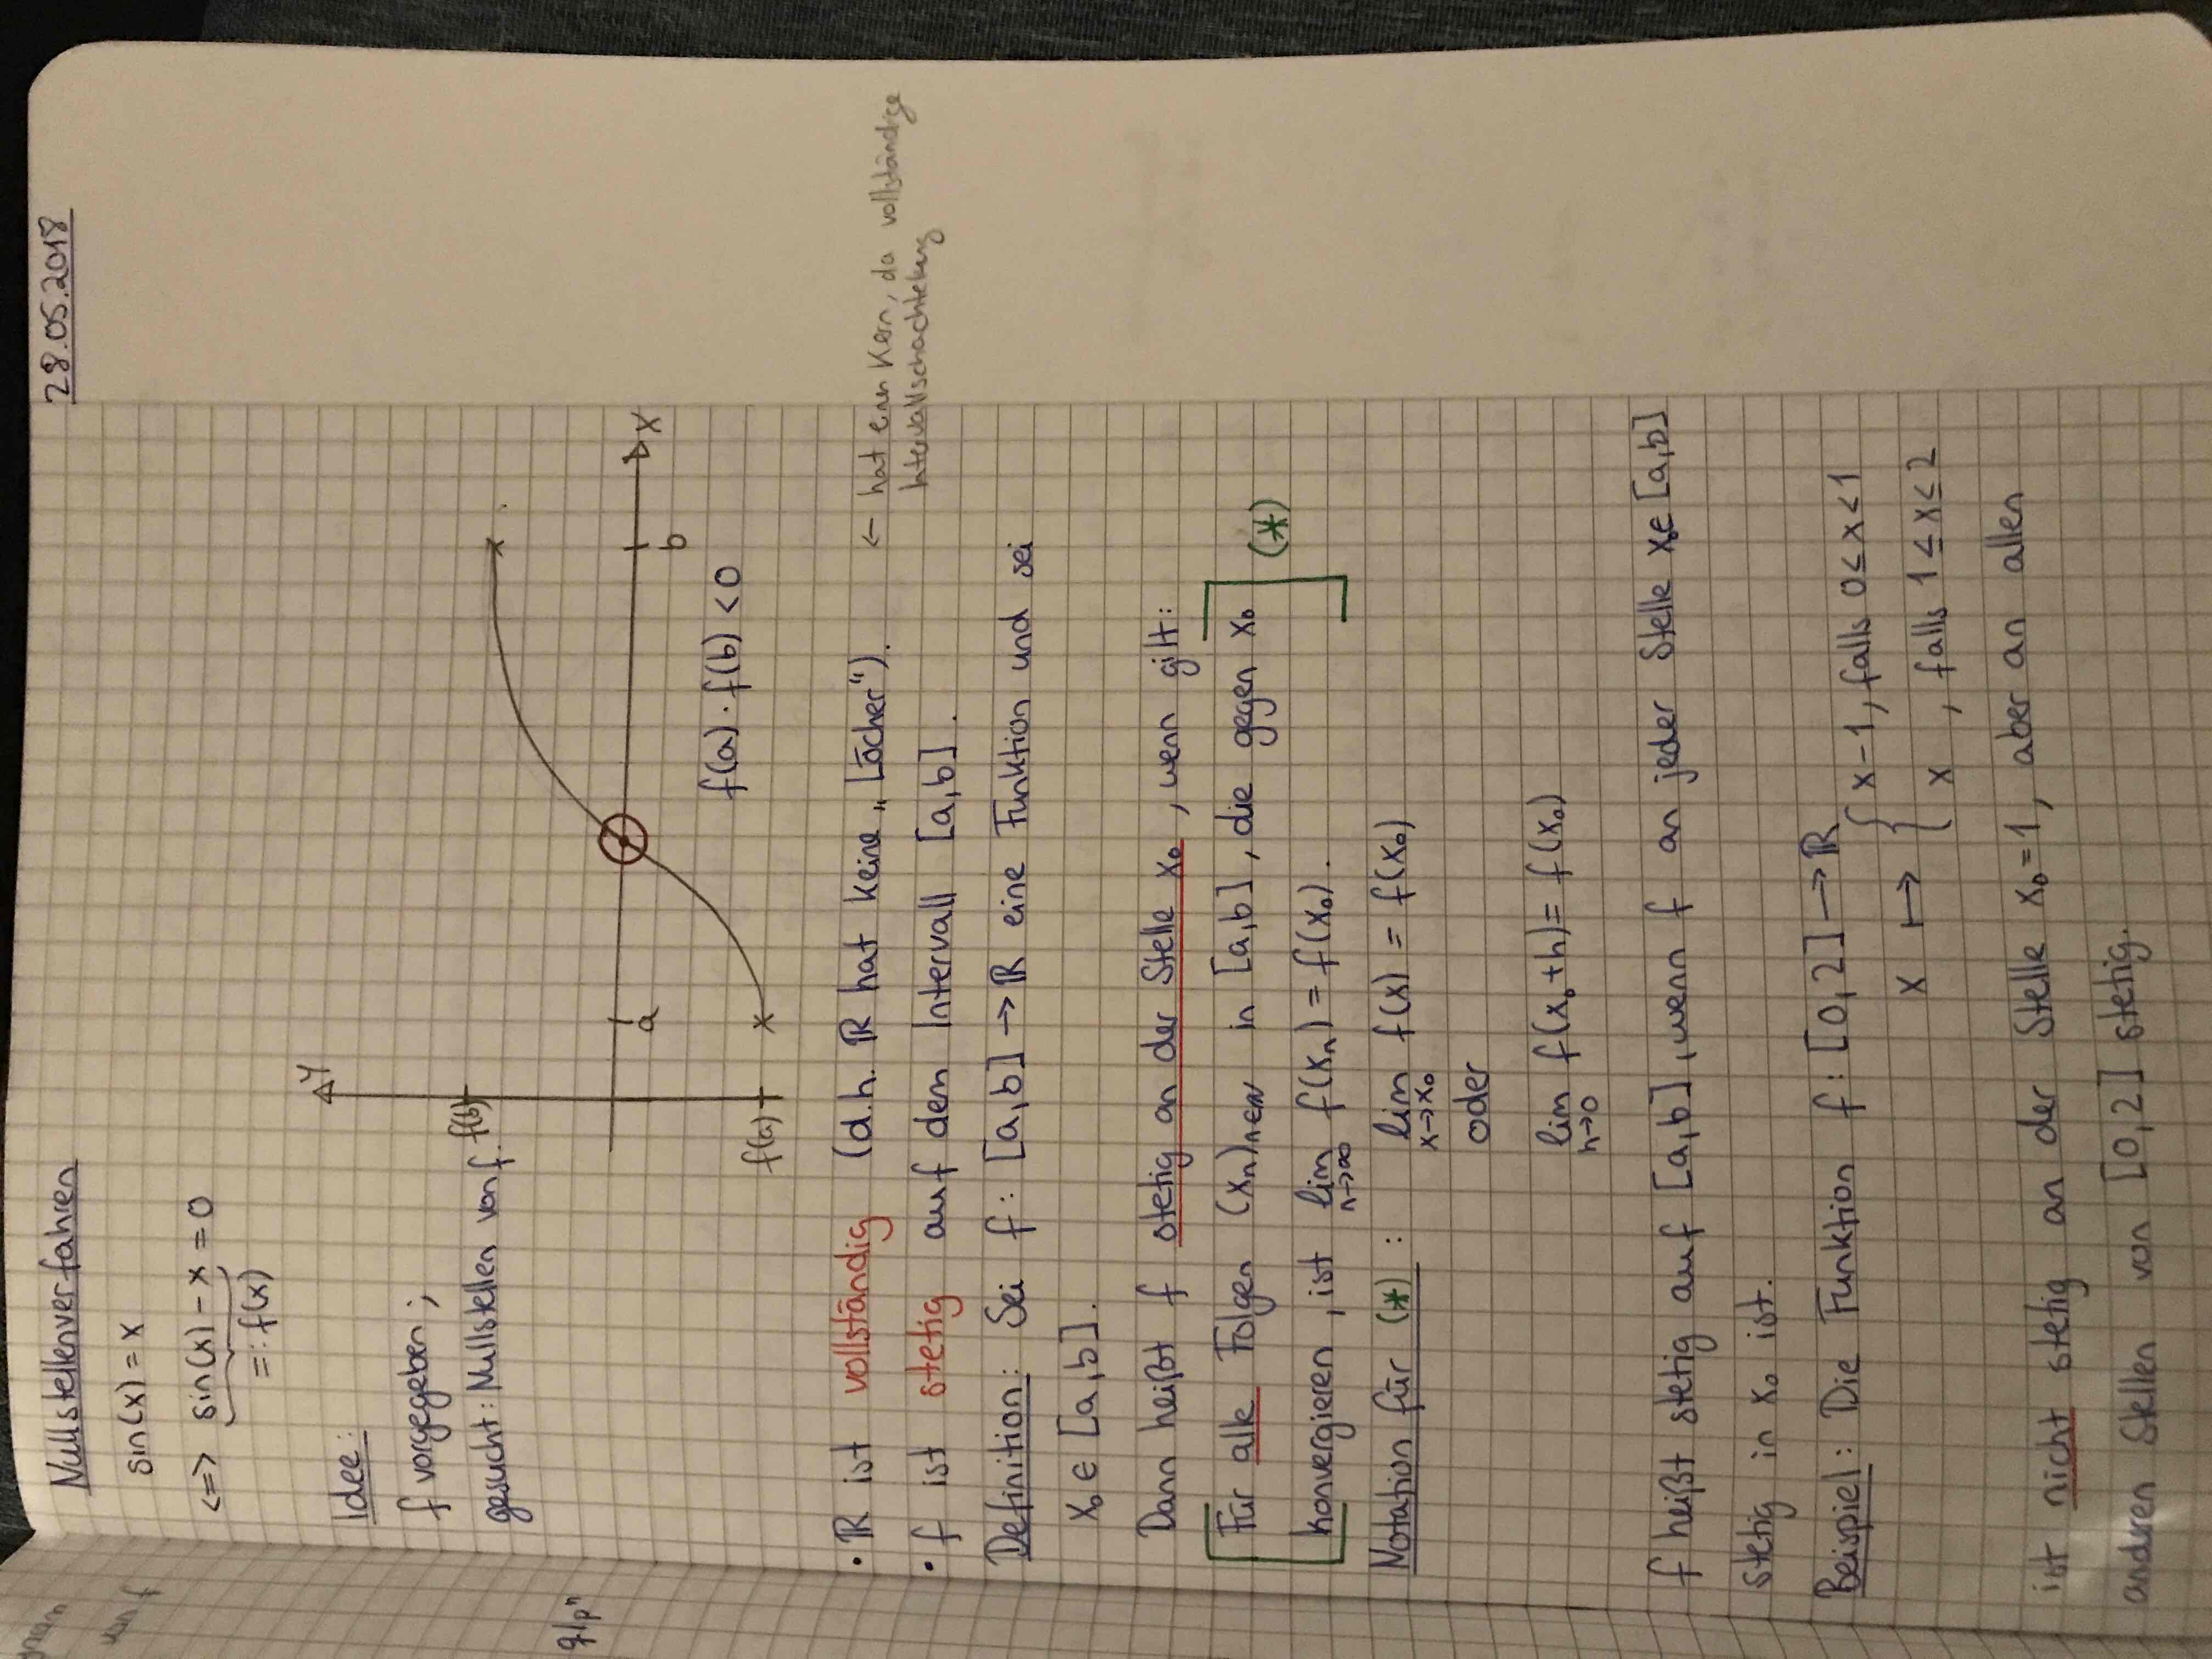 28.05.2018
Nullstellenverfahren
sin(x) = x
<=> sin(x) - x = 0
=: f(x)
Idee:
f vorgegeben;
gesucht: Nullstellen von f.
y
f(b)
f(a)
a
b
x
f(a) · f(b) < 0
• ℝ ist vollständig (d.h. ℝ hat keine „Löcher“). ← hat einen Kern, da vollständige
Intervallschachtelung
• f ist stetig auf dem Intervall [a,b].
Definition: Sei f: [a,b] → ℝ eine Funktion und sei
x₀ ∈ [a,b].
Dann heißt f stetig an der Stelle x₀, wenn gilt:
Für alle Folgen (xₙ)ₙ∈ℕ in [a,b], die gegen x₀
konvergieren, ist lim n→∞ f(xₙ) = f(x₀). (*)
Notation für (*): lim x→x₀ f(x) = f(x₀)
oder
lim h→0 f(x₀+h) = f(x₀)
f heißt stetig auf [a,b], wenn f an jeder Stelle x₀∈[a,b]
stetig in x₀ ist.
Beispiel: Die Funktion f: [0,2] → ℝ
x ↦ { x-1, falls 0≤x<1
x, falls 1≤x≤2
ist nicht stetig an der Stelle x₀=1, aber an allen
anderen Stellen von [0,2] stetig.
von f
q/p"